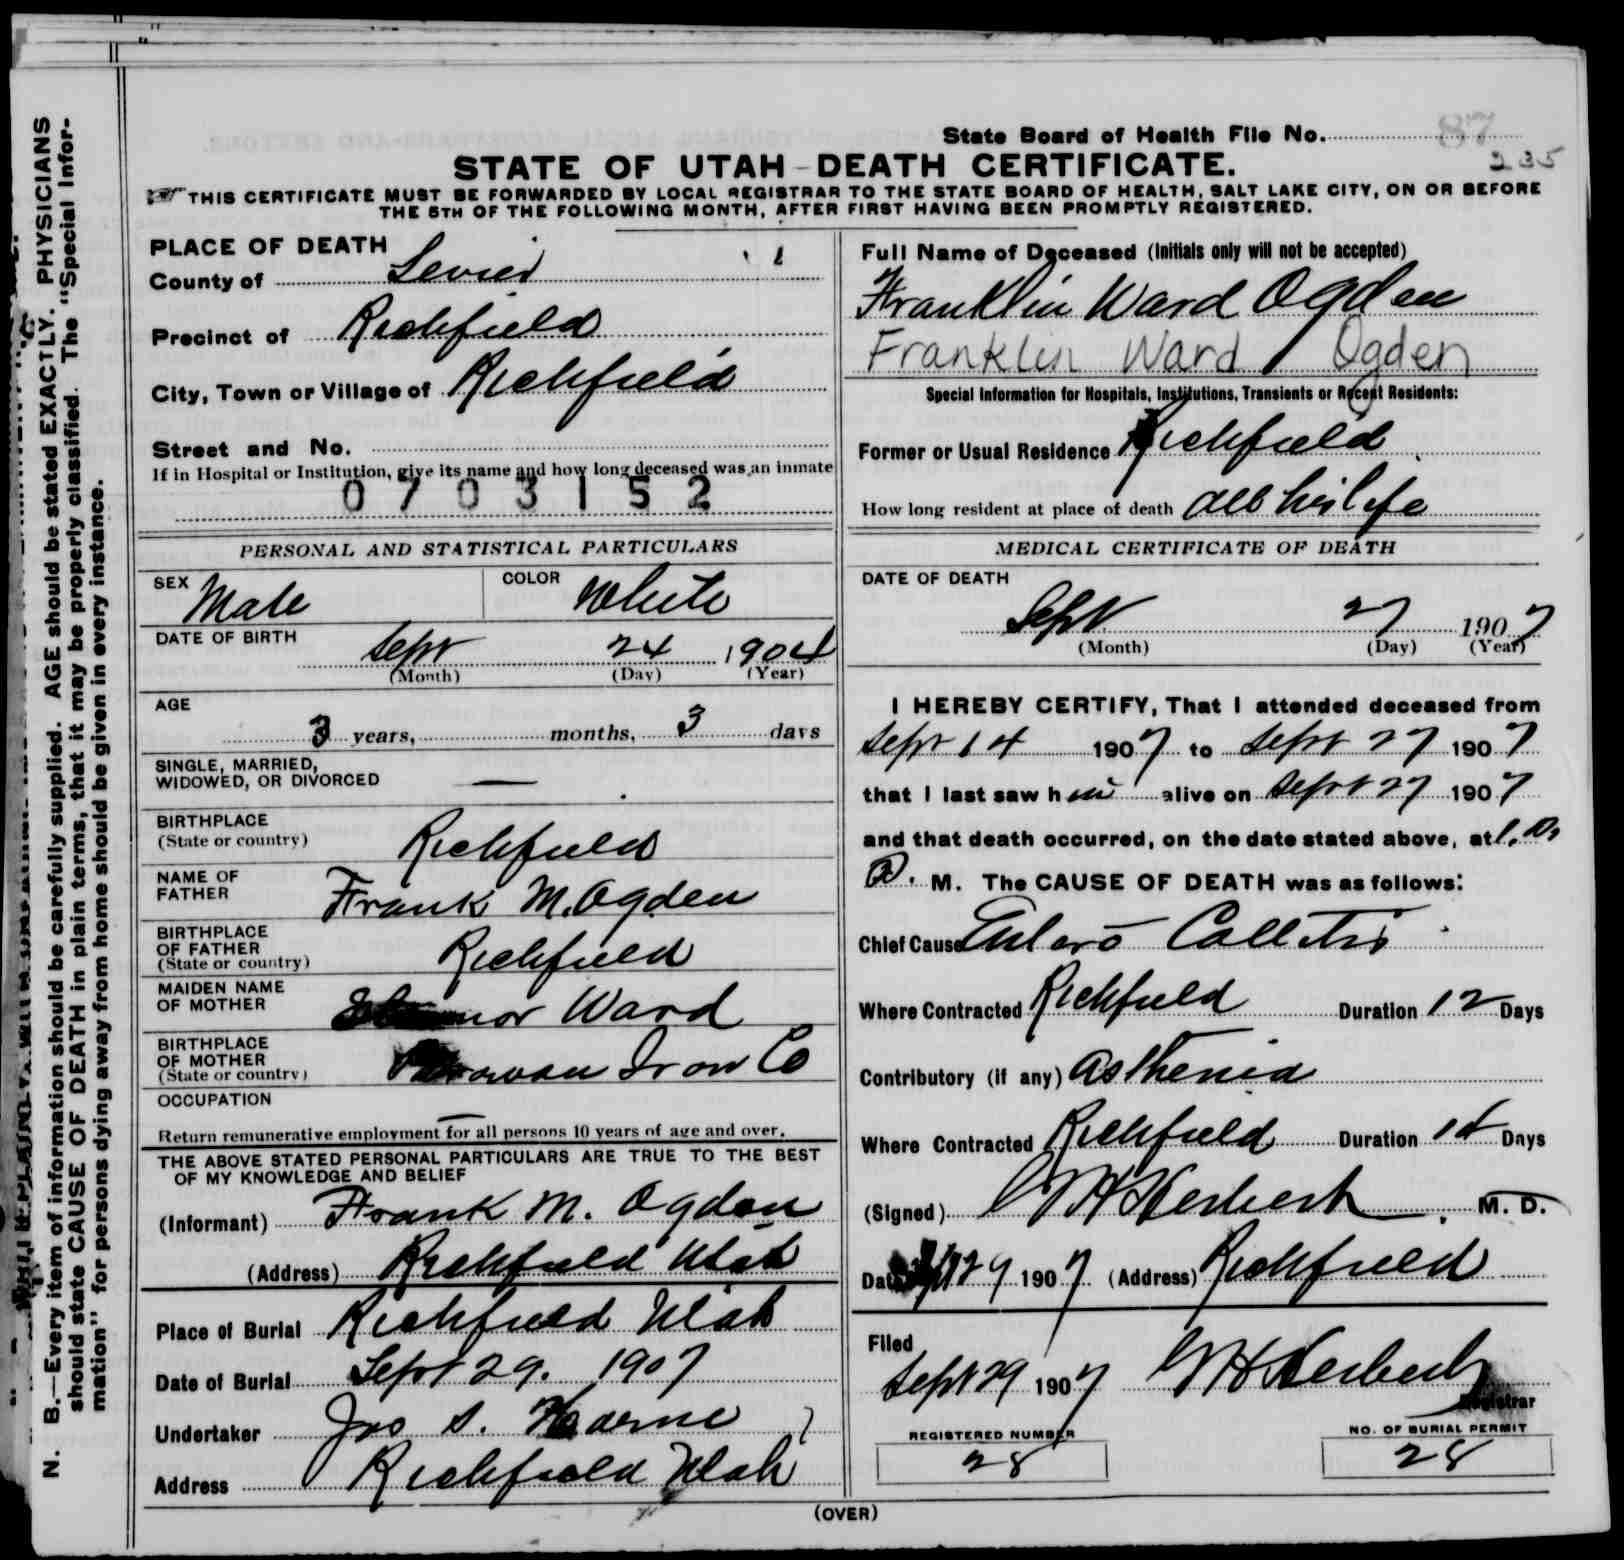 State Board of Health File No. 87
235
STATE OF UTAH—DEATH CERTIFICATE.
THIS CERTIFICATE MUST BE FORWARDED BY LOCAL REGISTRAR TO THE STATE BOARD OF HEALTH, SALT LAKE CITY, ON OR BEFORE
THE 5TH OF THE FOLLOWING MONTH, AFTER FIRST HAVING BEEN PROMPTLY REGISTERED.
PLACE OF DEATH
County of Sevier
Precinct of Richfield
City, Town or Village of Richfield
Street and No.
If in Hospital or Institution, give its name and how long deceased was an inmate
0703152
PERSONAL AND STATISTICAL PARTICULARS
SEX Male COLOR White
DATE OF BIRTH
Sept 24 1904
(Month) (Day) (Year)
AGE
3 years, months, 3 days
SINGLE, MARRIED,
WIDOWED, OR DIVORCED —
BIRTHPLACE
(State or country) Richfield
NAME OF
FATHER Frank M. Ogden
BIRTHPLACE
OF FATHER
(State or country) Richfield
MAIDEN NAME
OF MOTHER Ward
BIRTHPLACE
OF MOTHER
(State or country) Parowan Iron Co
OCCUPATION
—
Return remunerative employment for all persons 10 years of age and over.
THE ABOVE STATED PERSONAL PARTICULARS ARE TRUE TO THE BEST
OF MY KNOWLEDGE AND BELIEF
(Informant) Frank M. Ogden
(Address) Richfield Utah
Place of Burial Richfield Utah
Date of Burial Sept 29. 1907
Undertaker Jos S. Horne
Address Richfield Utah
Full Name of Deceased (Initials only will not be accepted)
Franklin Ward Ogden
Franklin Ward Ogden
Special Information for Hospitals, Institutions, Transients or Recent Residents:
Former or Usual Residence Richfield
How long resident at place of death all his life
MEDICAL CERTIFICATE OF DEATH
DATE OF DEATH
Sept 27 1907
(Month) (Day) (Year)
I HEREBY CERTIFY, That I attended deceased from
Sept 14 1907 to Sept 27 1907
that I last saw him alive on Sept 27 1907
and that death occurred, on the date stated above, at
a. M. The CAUSE OF DEATH was as follows:
Chief Cause Entero Collitis
Where Contracted Richfield Duration 12 Days
Contributory (if any) Asthenia
Where Contracted Richfield Duration Days
(Signed) Herbert M. D.
Date 29 1907 (Address) Richfield
Filed
Sept 29 1907 Herbert
Registrar
REGISTERED NUMBER
28
NO. OF BURIAL PERMIT
28
(OVER)
N. B.—Every item of information should be carefully supplied. AGE should be stated EXACTLY. PHYSICIANS
should state CAUSE OF DEATH in plain terms, that it may be properly classified. The "Special Infor-
mation" for persons dying away from home should be given in every instance.